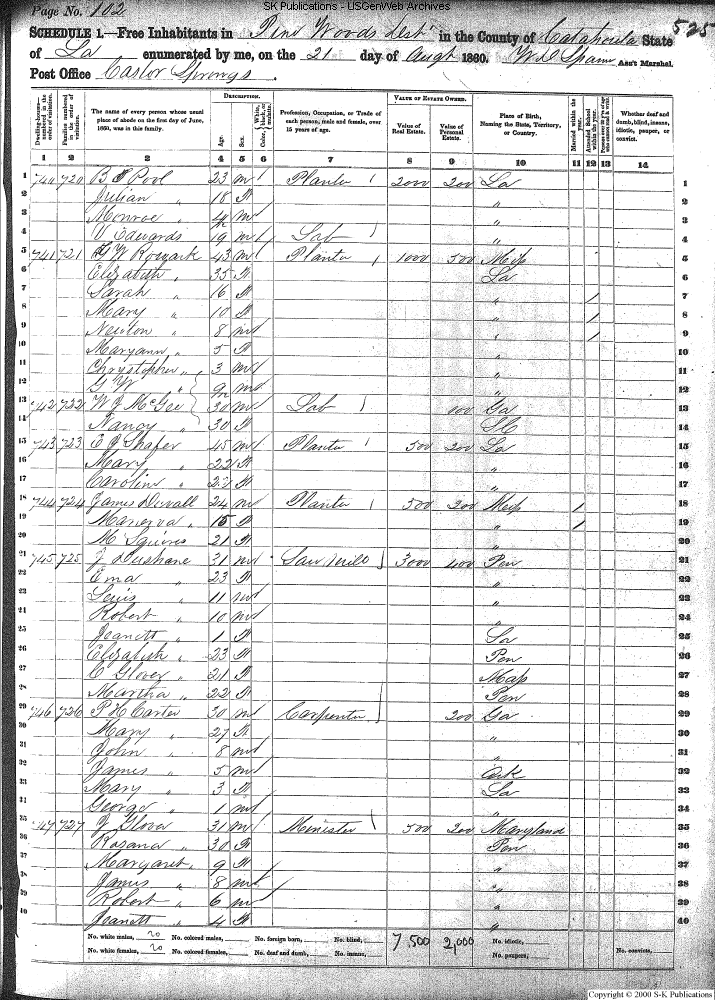 SK Publications - USGenWeb Archives
Page No. 102
525
SCHEDULE 1.—Free Inhabitants in Pine Woods Dist in the County of Catahoula State
of La enumerated by me, on the 21 day of Augt 1860. Ass't Marshal.
Post Office Castor Springs.
Dwelling-houses—numbered in the order of visitation.
Families numbered in the order of visitation.
The name of every person whose usual place of abode on the first day of June, 1860, was in this family.
DESCRIPTION.
Age.
Sex.
Color, White, black, or mulatto.
Profession, Occupation, or Trade of each person, male and female, over 15 years of age.
VALUE OF ESTATE OWNED.
Value of Real Estate.
Value of Personal Estate.
Place of Birth, Naming the State, Territory, or Country.
Married within the year.
Attended School within the year.
Whether deaf and dumb, blind, insane, idiotic, pauper, or convict.
1 2 3 4 5 6 7 8 9 10 11 12 13 14
1 740 720 Pool 23 m Planter 2000 200 La 1
2 Julian " 18 f " 2
3 Monroe " m " 3
4 V Edwards 19 m Lab " 4
5 741 721 G W Rowark 43 m Planter 1000 500 Mip 5
6 Elizabeth " 35 f La 6
7 Sarah " 16 f " / 7
8 Mary " 10 f " / 8
9 Newton " 8 m " / 9
10 Maryann " 5 f " 10
11 Chrystopher " 3 m " 11
12 G W " m " 12
13 742 722 W J McGee 30 m Lab 100 Ga 13
14 Nancy " 30 f SC 14
15 743 723 E J Shafer 45 m Planter 500 200 La 15
16 Mary " 22 f " 16
17 Caroline " 22 f " 17
18 744 724 James Dowall 24 m Planter 500 200 Mip / 18
19 Manerva " 15 f " / 19
20 M Squires 21 f " 20
21 745 725 J Dushane 31 m Saw Mill 3000 400 Pen 21
22 Ema " 23 f " 22
23 Lewis " 11 m " 23
24 Robert " 10 m " 24
25 Jeanett " 1 f La 25
26 Elizabeth " 23 f Pen 26
27 C Glover " 21 f 27
28 Martha " 22 f Pen 28
29 746 726 P H Carter 30 m Carpenter 200 Ga 29
30 Mary " 27 f " 30
31 John " 8 m " 31
32 James " 5 m Ark 32
33 Mary " 3 f La 33
34 George " 1 m " 34
35 747 727 J Glover 31 m Minister 500 200 Maryland 35
36 Rosana " 30 f Pen 36
37 Margaret " 9 f " 37
38 James " 8 m " 38
39 Robert " 6 m " 39
40 Jeanett " 4 f " 40
No. white males, 20 No. colored males, No. foreign born, No. blind, 7,500 2,000 No. idiotic,
No. white females, 20 No. colored females, No. deaf and dumb, No. insane, No. paupers, No. convicts,
Copyright © 2000 S-K Publications